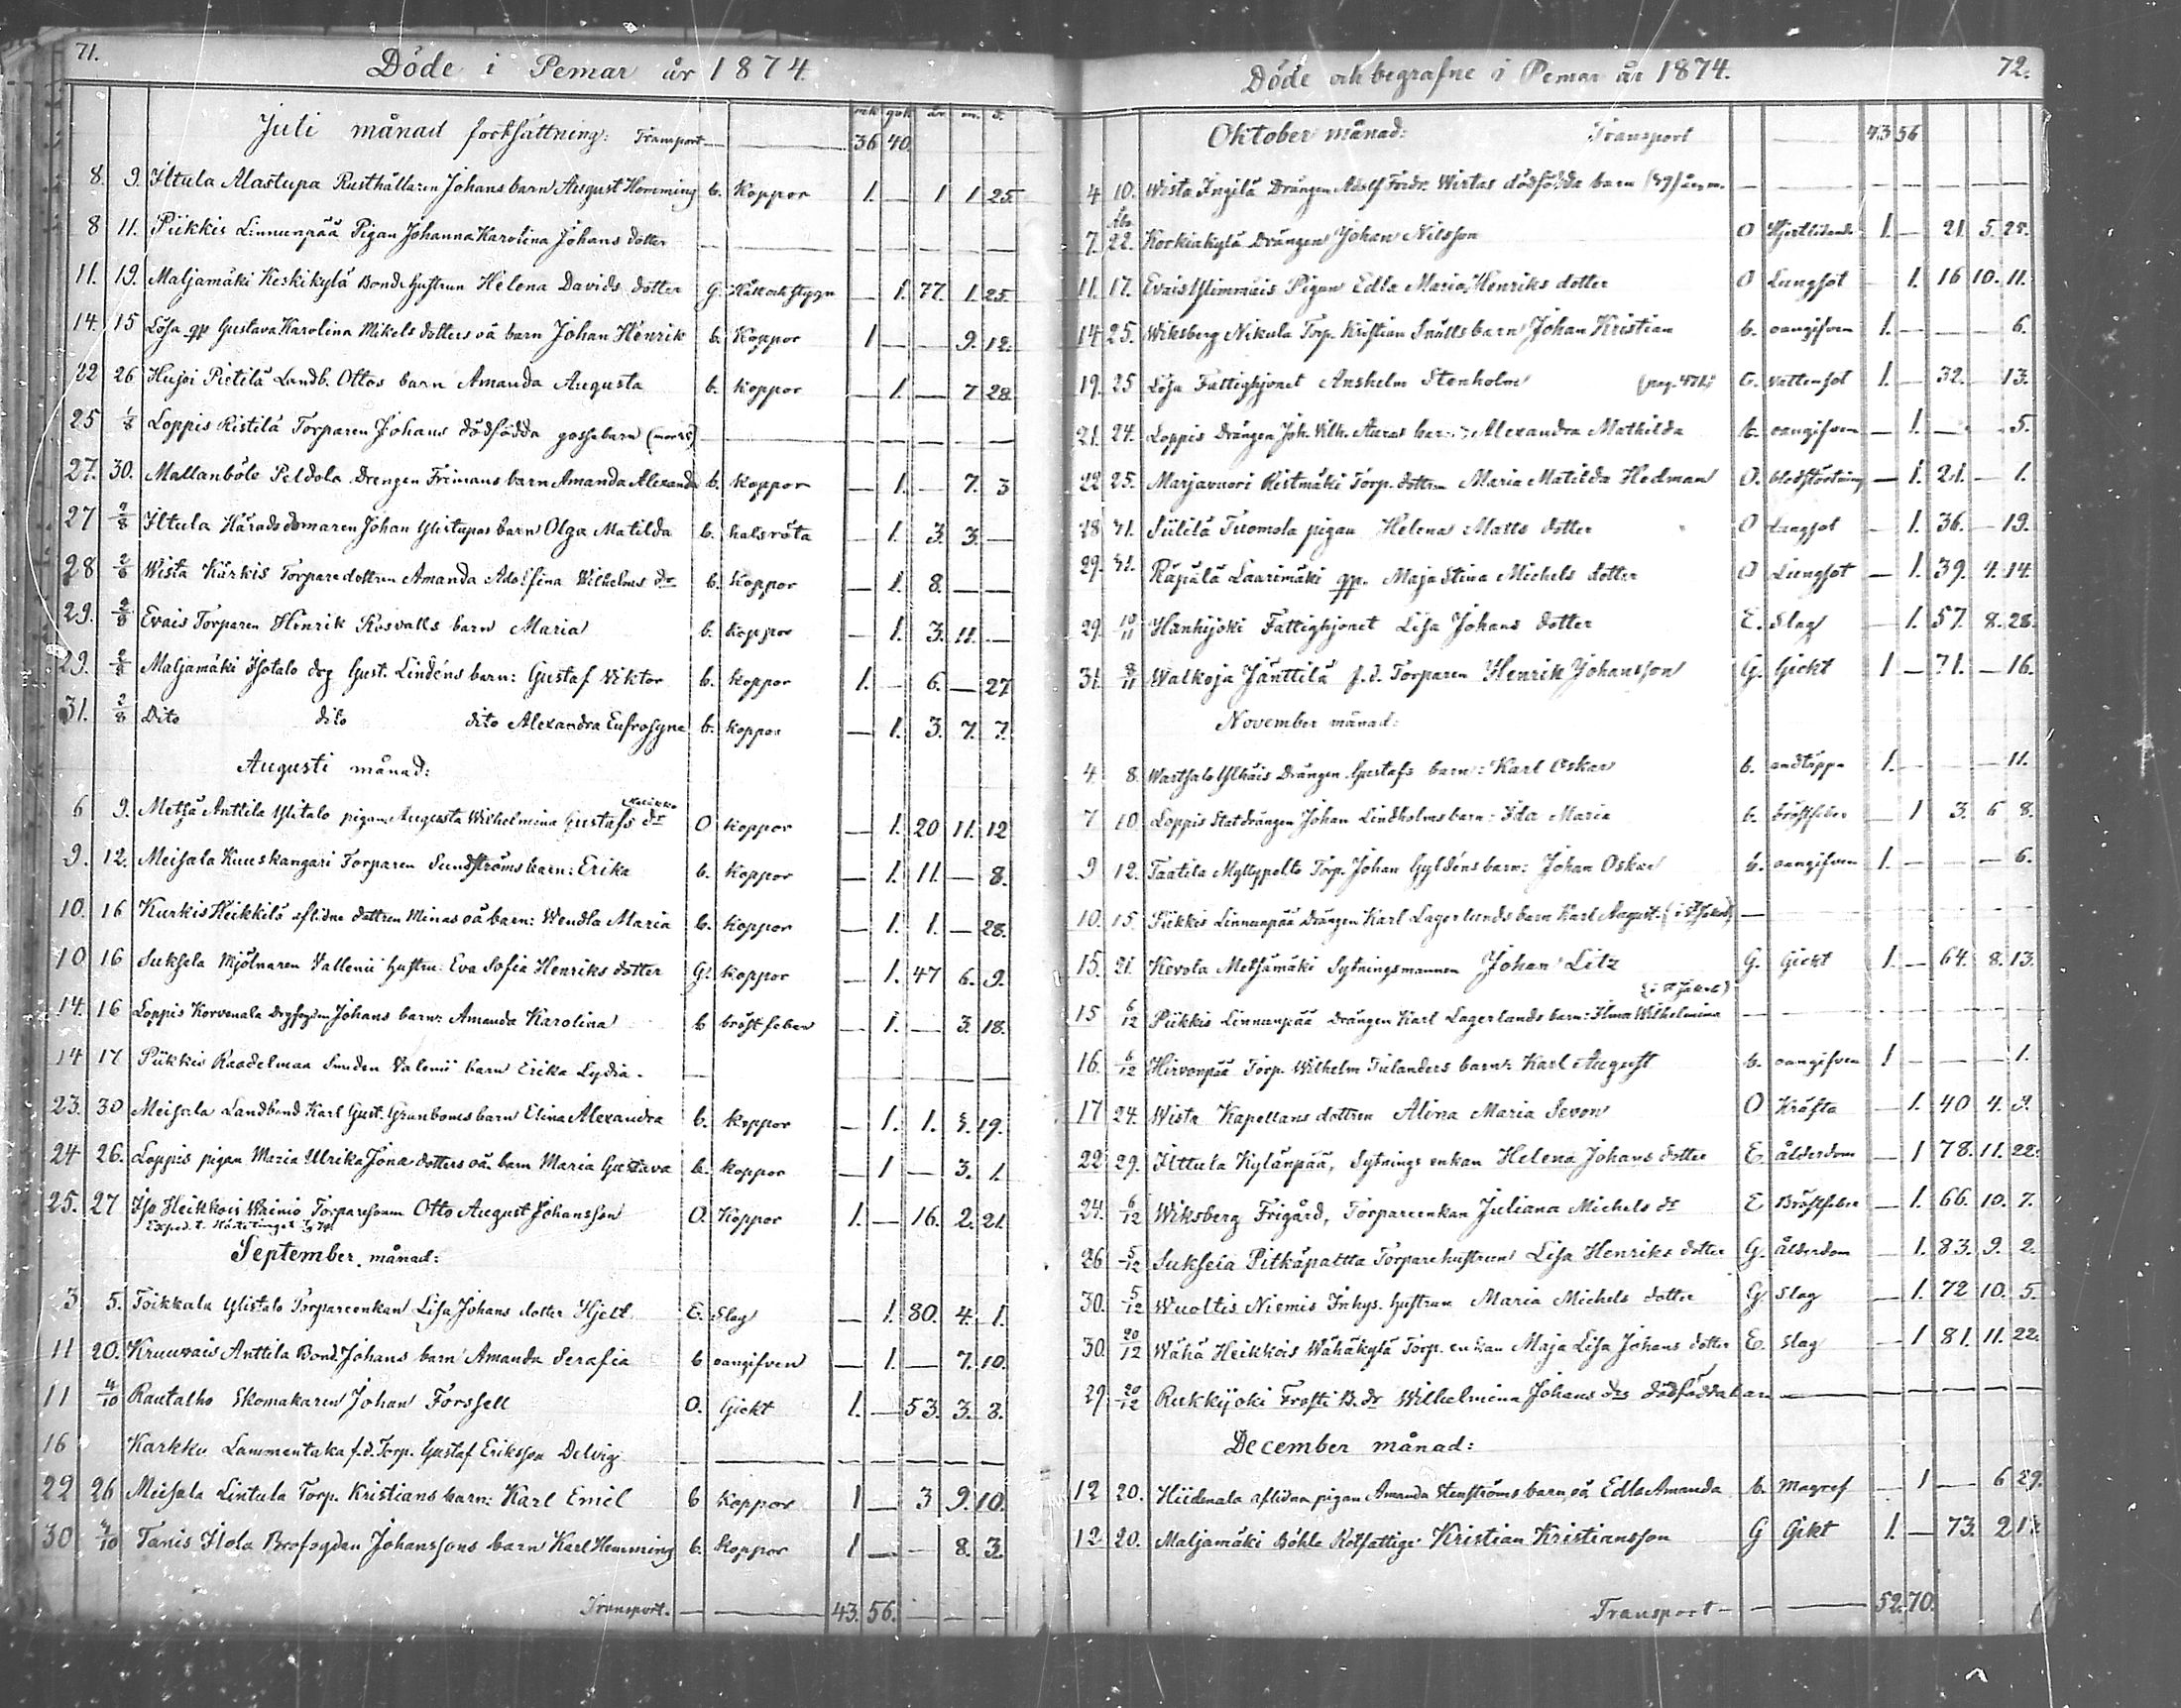 71.
Döde i Pemar år 1874.
mk. qvk. år. m. d.
Juli månad fortsättning: Transport — — 36 40.
8. 9. Iltula Alastupa Rusthållaren Johans barn August Hemming b. Koppor 1. — 1 1 25.
8 11. Piikkis Linnunpää Pigan Johanna Karolina Johans dotter — — — — — — —
11. 19. Maljamäki Keskikylä Bonde hustrun Helena Davids dotter G. Håll och stygn — 1. 77. 1. 25.
14. 15 Lösa qp Gustava Karolina Mikels dotters oä barn Johan Henrik b. Koppor 1 — — 9. 12.
22 26 Hujoi Pietilä Landb. Ottos barn Amanda Augusta b. koppor — 1. — 7 28.
25 1/8 Loppis Ristilä Torparen Johans dödfödda gossebarn — — — — — — —
27. 30. Mallanböle Peldola Drengen Frimans barn Amanda Alexandra b. koppor — 1. — 7. 3
27 2/8 Iltula Häradsdomaren Johan Ylistupas barn Olga Matilda b. halsröta — 1. 3. 3. —
28 2/8 Wista Kärkis Torparedottren Amanda Adolfina Wilhelms dr b. Koppor — 1. 8. — —
29. 2/8 Evais Torparen Henrik Rosvalls barn Maria b. koppor — 1. 3. 11. —
29. 2/8 Maljamäki Isotalo drg Gust. Lindéns barn: Gustaf Viktor b. koppor 1. — 6. — 27
31. 2/8 Dito dito dito Alexandra Eufrosyna b. koppor — 1. 3. 7. 7.
Augusti månad:
6 9. Metsä Anttila Ylitalo pigan Augusta Wilhelmina Gustafs dr O koppor — 1. 20 11. 12
9. 12. Meisala Kuuskangari Torparen Sundströms barn: Erika b. koppor — 1. 11. — 8.
10. 16 Kurkis Heikkilä aflidne dottren Minas oä barn: Wendla Maria b. koppor — 1. 1. — 28.
10 16 Suksela Mjölnaren Vallenii hustru: Eva Sofia Henriks dotter G. koppor — 1. 47 6. 9.
14. 16 Loppis Korvenala Johans barn: Amanda Karolina b bröstfeber — 1. — 3. 18.
14 17 Piikkis Raadelmaa Smeden Valenii barn Erika Lydia. — — — — — — —
23. 30 Meisala Landbond Karl Gust. Granboms barn Elina Alexandra b. koppor — 1. 1. 5. 19.
24 26. Loppis pigan Maria Ulrika Jona dotters oä. barn Maria Gustava b. koppor — 1 — 3. 1.
25. 27 Iso Heikkois Wainio Torparesonen Otto August Johansson O. Koppor 1. — 16. 2. 21.
September månad:
3 5. Toikkala Ylistalo Torpareenkan Lisa Johans dotter Hjelt. E. Slag — 1. 80. 4. 1.
11 20. Kruuvais Anttila Bond. Johans barn Amanda Serafia b oangifven — 1. — 7. 10.
11 4/10 Rautalho Skomakaren Johan Forssell O. Gickt 1. — 53. 3. 8.
16 Karkku Lammentaka f.d. Torp. Gustaf Eriksson Delvig — — — — — — —
22 26 Meisala Lintula Torp. Kristians barn: Karl Emil b koppor 1 — 3 9. 10.
30 4/10 Tanis Ilola Brofogden Johanssons barn Karl Hemming b. koppor 1 — — 8. 3.
Transport. — — 43. 56. — — —
72.
Döde och begrafne i Pemar år 1874.
Oktober månad: Transport — 43 56
4 10. Wista Ingilä Drängen Adolf Fredr. Wirtas dödfödda barn — — — — — — —
7. 22. Åbo Korkiakylä Drängen Johan Nilsson O 1. — 21. 5. 25.
11. 17. Evais Ylimmäis Pigan Edla Maria Henriks dotter O Lungsot — 1. 16 10. 11.
14 25. Wiksberg Nikula Torp. Kristian Snälls barn Johan Kristian b. oangifven 1. — — — 6.
19. 25 Lösa Fattighjonet Anshelm Stenholm G. Vattensot 1. — 32. — 13.
21. 24. Loppis Drängen Joh. Vilh. Auras barn: Alexandra Mathilda b. oangifven — 1. — — 5.
22 25. Marjavuori Ristmäki Torp. dottren Maria Matilda Hedman O. blodstörtning — 1. 21. — 1.
28 31. Siitilä Tuomola pigan Helena Matts dotter O Lungsot — 1. 36. — 19.
29. 31. Räpälä Laarimäki qp. Maja Stina Michels dotter O Lungsot — 1. 39. 4. 14.
29. 10/11 Hankijoki Fattighjonet Lisa Johans dotter E. Slag — 1. 57. 8. 28.
31. 8/11 Walkoja Jänttilä f.d. Torparen Henrik Johansson G. Gickt 1 — 71. — 16.
November månad:
4 8. Wartsalo Ylhäis Drängen Gustafs barn: Karl Oskar b. andtäppa 1. — — — 11.
7 10 Loppis Statdrängen Johan Lindholms barn: Ida Maria b. bröstfeber — 1 3. 6 8.
9 12. Taatila Myllypelto Torp. Johan Gyldéns barn: Johan Oskar b. oangifven 1. — — — 6.
10. 15. Piikkis Linnunpää Drängen Karl Lagerlunds barn Karl August — — — — — — —
15. 21. Kevola Metsämäki Sytningsmannen Johan Litz G. Gickt 1. — 64. 8. 13.
15 6/12 Piikkis Linnunpää Drängen Karl Lagerlunds barn: Ilma Wilhelmina — — — — — — —
16. 6/12 Hirvonpää Torp. Wilhelm Tulanders barn: Karl August b. oangifven 1 — — — 1.
17 24. Wista Kapellans dottren Alina Maria Sevon O Kräfta — 1. 40 4. 9.
22. 29. Ilttula Kylänpää, Sytnings enkan Helena Johans dotter E ålderdom — 1 78. 11. 22.
24. 6/12 Wiksberg Frigård, Torpareenkan Juliana Michels dr E Bröstfeber — 1. 66. 10. 7.
26 5/12 Suksela Pitkäpaltta Torparehustrun Lisa Henriks dotter G. ålderdom — 1. 83. 9. 2.
30. 5/12 Wuoltis Niemis Inhys. hustrun Maria Michels dotter G Slag — 1. 72 10. 5.
30. 20/12 Wähä Heikkois Wähäkylä Torp. enkan Maja Lisa Johans dotter E. Slag — 1 81. 11. 22.
29 20/12 Rukkijoki Frosti B. dr Wilhelmina Johans drs dödfödda barn — — — — — —
December månad:
12 20. Hiidenala aflidna pigan Amanda Stenströms barn, oä Edla Amanda b. Magref — 1 — 6 29.
12. 20. Maljamäki Böhle Rotfattige Kristian Kristiansson G Gikt 1. — 73. 2
Transport — — 52. 70.